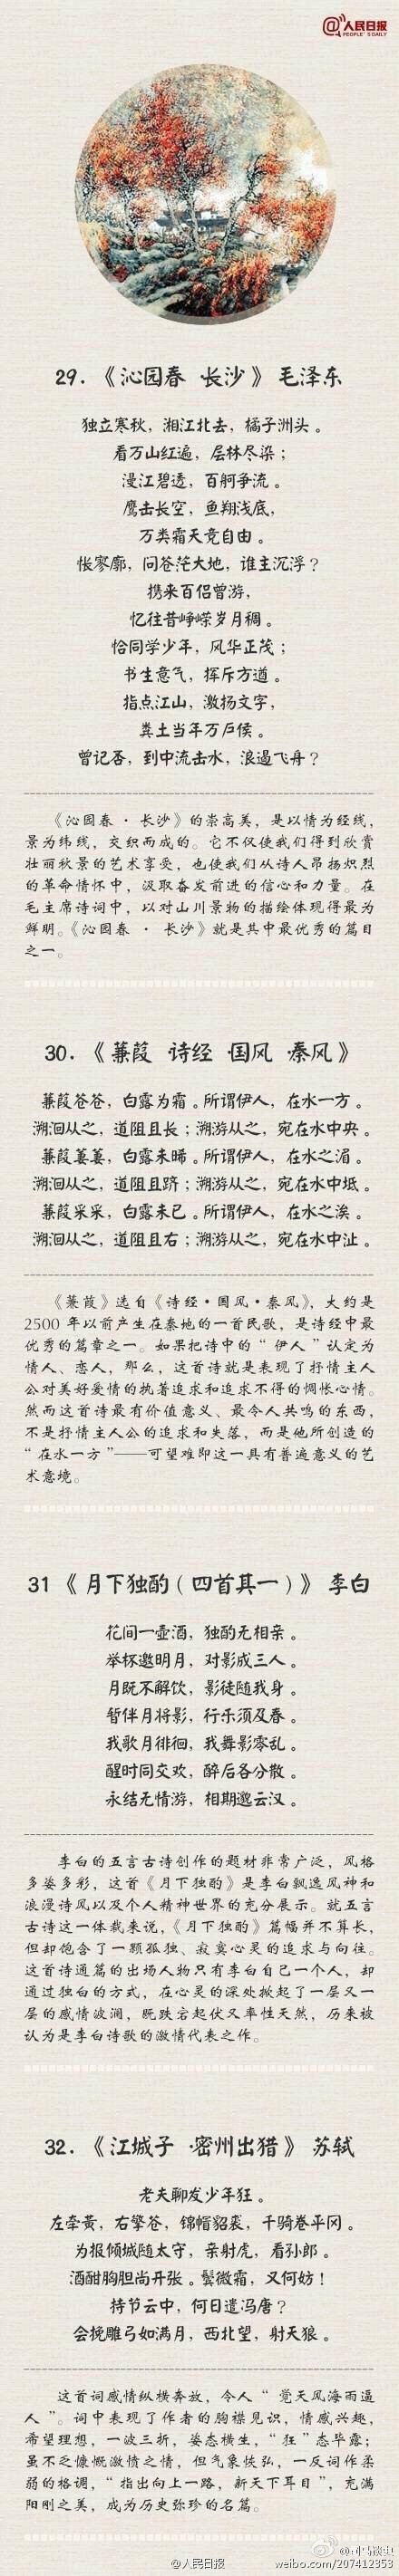 @人民日报
PEOPLE'S DAILY
29.《沁园春 长沙》毛泽东
独立寒秋，湘江北去，橘子洲头。
看万山红遍，层林尽染；
漫江碧透，百舸争流。
鹰击长空，鱼翔浅底，
万类霜天竞自由。
怅寥廓，问苍茫大地，谁主沉浮？
携来百侣曾游，
忆往昔峥嵘岁月稠。
恰同学少年，风华正茂；
书生意气，挥斥方遒。
指点江山，激扬文字，
粪土当年万户侯。
曾记否，到中流击水，浪遏飞舟？
《沁园春·长沙》的崇高美，是以情为经线，
景为纬线，交织而成的。它不仅使我们得到欣赏
壮丽秋景的艺术享受，也使我们从诗人昂扬炽烈
的革命情怀中，汲取奋发前进的信心和力量。在
毛主席诗词中，以对山川景物的描绘体现得最为
鲜明。《沁园春·长沙》就是其中最优秀的篇目
之一。
30.《蒹葭 诗经·国风·秦风》
蒹葭苍苍，白露为霜。所谓伊人，在水一方。
溯洄从之，道阻且长；溯游从之，宛在水中央。
蒹葭萋萋，白露未晞。所谓伊人，在水之湄。
溯洄从之，道阻且跻；溯游从之，宛在水中坻。
蒹葭采采，白露未已。所谓伊人，在水之涘。
溯洄从之，道阻且右；溯游从之，宛在水中沚。
《蒹葭》选自《诗经·国风·秦风》，大约是
2500 年以前产生在秦地的一首民歌，是诗经中最
优秀的篇章之一。如果把诗中的“伊人”认定为
情人、恋人，那么，这首诗就是表现了抒情主人
公对美好爱情的执着追求和追求不得的惆怅心情。
然而这首诗最有价值意义、最令人共鸣的东西，
不是抒情主人公的追求和失落，而是他所创造的
“在水一方”——可望难即这一具有普遍意义的艺
术意境。
31《月下独酌（四首其一）》李白
花间一壶酒，独酌无相亲。
举杯邀明月，对影成三人。
月既不解饮，影徒随我身。
暂伴月将影，行乐须及春。
我歌月徘徊，我舞影零乱。
醒时同交欢，醉后各分散。
永结无情游，相期邈云汉。
李白的五言古诗创作的题材非常广泛，风格
多姿多彩，这首《月下独酌》是李白飘逸风神和
浪漫诗风以及个人精神世界的充分展示。就五言
古诗这一体裁来说，《月下独酌》篇幅并不算长，
但却饱含了一颗孤独、寂寞心灵的追求与向往。
这首诗通篇的出场人物只有李白自己一个人，却
通过独白的方式，在心灵的深处掀起了一层又一
层的感情波澜，既跌宕起伏又率性天然，历来被
认为是李白诗歌的激情代表之作。
32.《江城子·密州出猎》苏轼
老夫聊发少年狂。
左牵黄，右擎苍，锦帽貂裘，千骑卷平冈。
为报倾城随太守，亲射虎，看孙郎。
酒酣胸胆尚开张。鬓微霜，又何妨！
持节云中，何日遣冯唐？
会挽雕弓如满月，西北望，射天狼。
这首词感情纵横奔放，令人“觉天风海雨逼
人”。词中表现了作者的胸襟见识，情感兴趣，
希望理想，一波三折，姿态横生，“狂”态毕露；
虽不乏慷慨激愤之情，但气象恢弘，一反词作柔
弱的格调，“指出向上一路，新天下耳目”，充满
阳刚之美，成为历史弥珍的名篇。
@人民日报
weibo.com/207412353